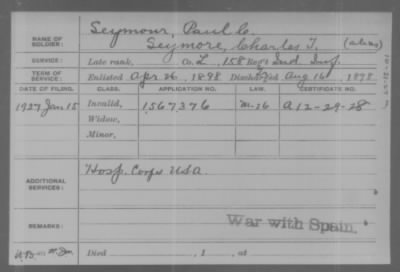 NAME OF SOLDIER: Seymour, Paul C.
Seymore, Charles T. (alias)
SERVICE: Late rank, Co. L, 158 Reg't Ind Inf
TERM OF SERVICE: Enlisted Apr 26, 1898 Discharged Aug 16, 1898
DATE OF FILING. CLASS. APPLICATION NO. LAW. CERTIFICATE NO.
1927 Jan 15 Invalid, 1567376 A 12-29-28
Widow,
Minor,
ADDITIONAL SERVICES: Hosp. Corps USA
REMARKS: War with Spain.
Died , 1 , at